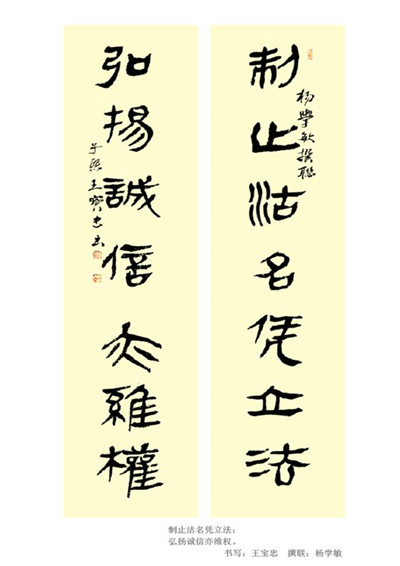 制止沽名凭立法
杨學敏撰聯
弘揚誠信亦維權
王寶忠書
制止沽名凭立法；
弘扬诚信亦维权。
书写：王宝忠　撰联：杨学敏